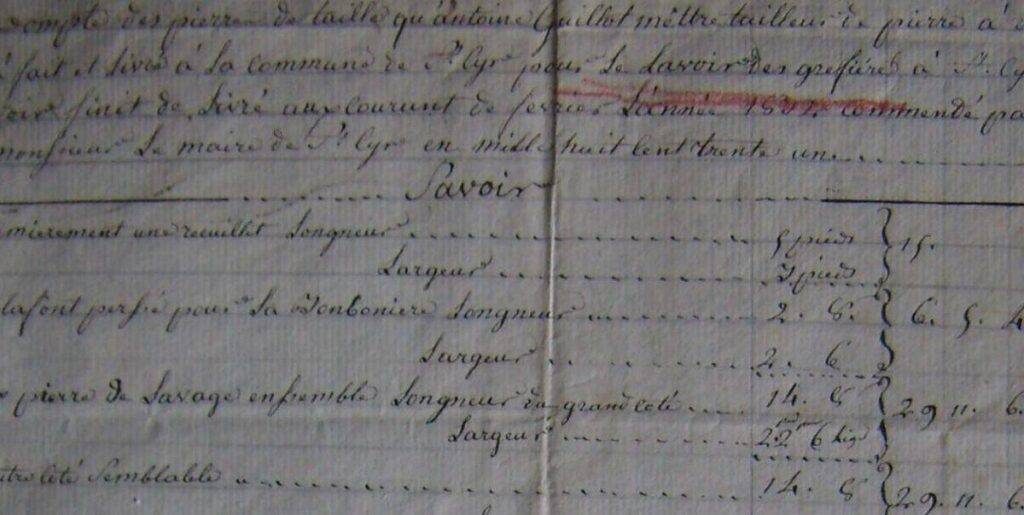 compte des pierre de taille qu'antoine Guillot mêttre tailleur de pierre à
fait et livré à la commune de St. Cyr pour le Lavoir des greffiéres à St. Cyr
finit de livré aux courent de fevrier L'année 1832 commendé pa
monsieur le maire de St. Cyr en mille huit cent trente une
Savoir
mierement une recuillet Longueur 5 pieds } 15.
Largeur 3 pieds
lafont persé pour la Longueur 2. 8. } 6. 5. 4
Largeur 2. 6
pierre de Lavage ensemble Longueur du grand coté 14. 8 } 29. 11. 6.
Largeur 2 6 lig
utre côté Semblable 14. 8 } 29. 11. 6.